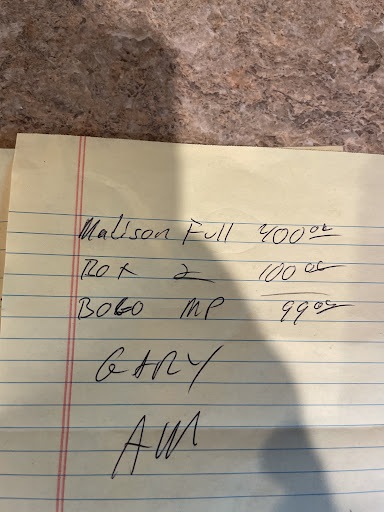 Madison Full 400 00
Rox 2 100 00
BOGO MP 99 00
GARY
AM